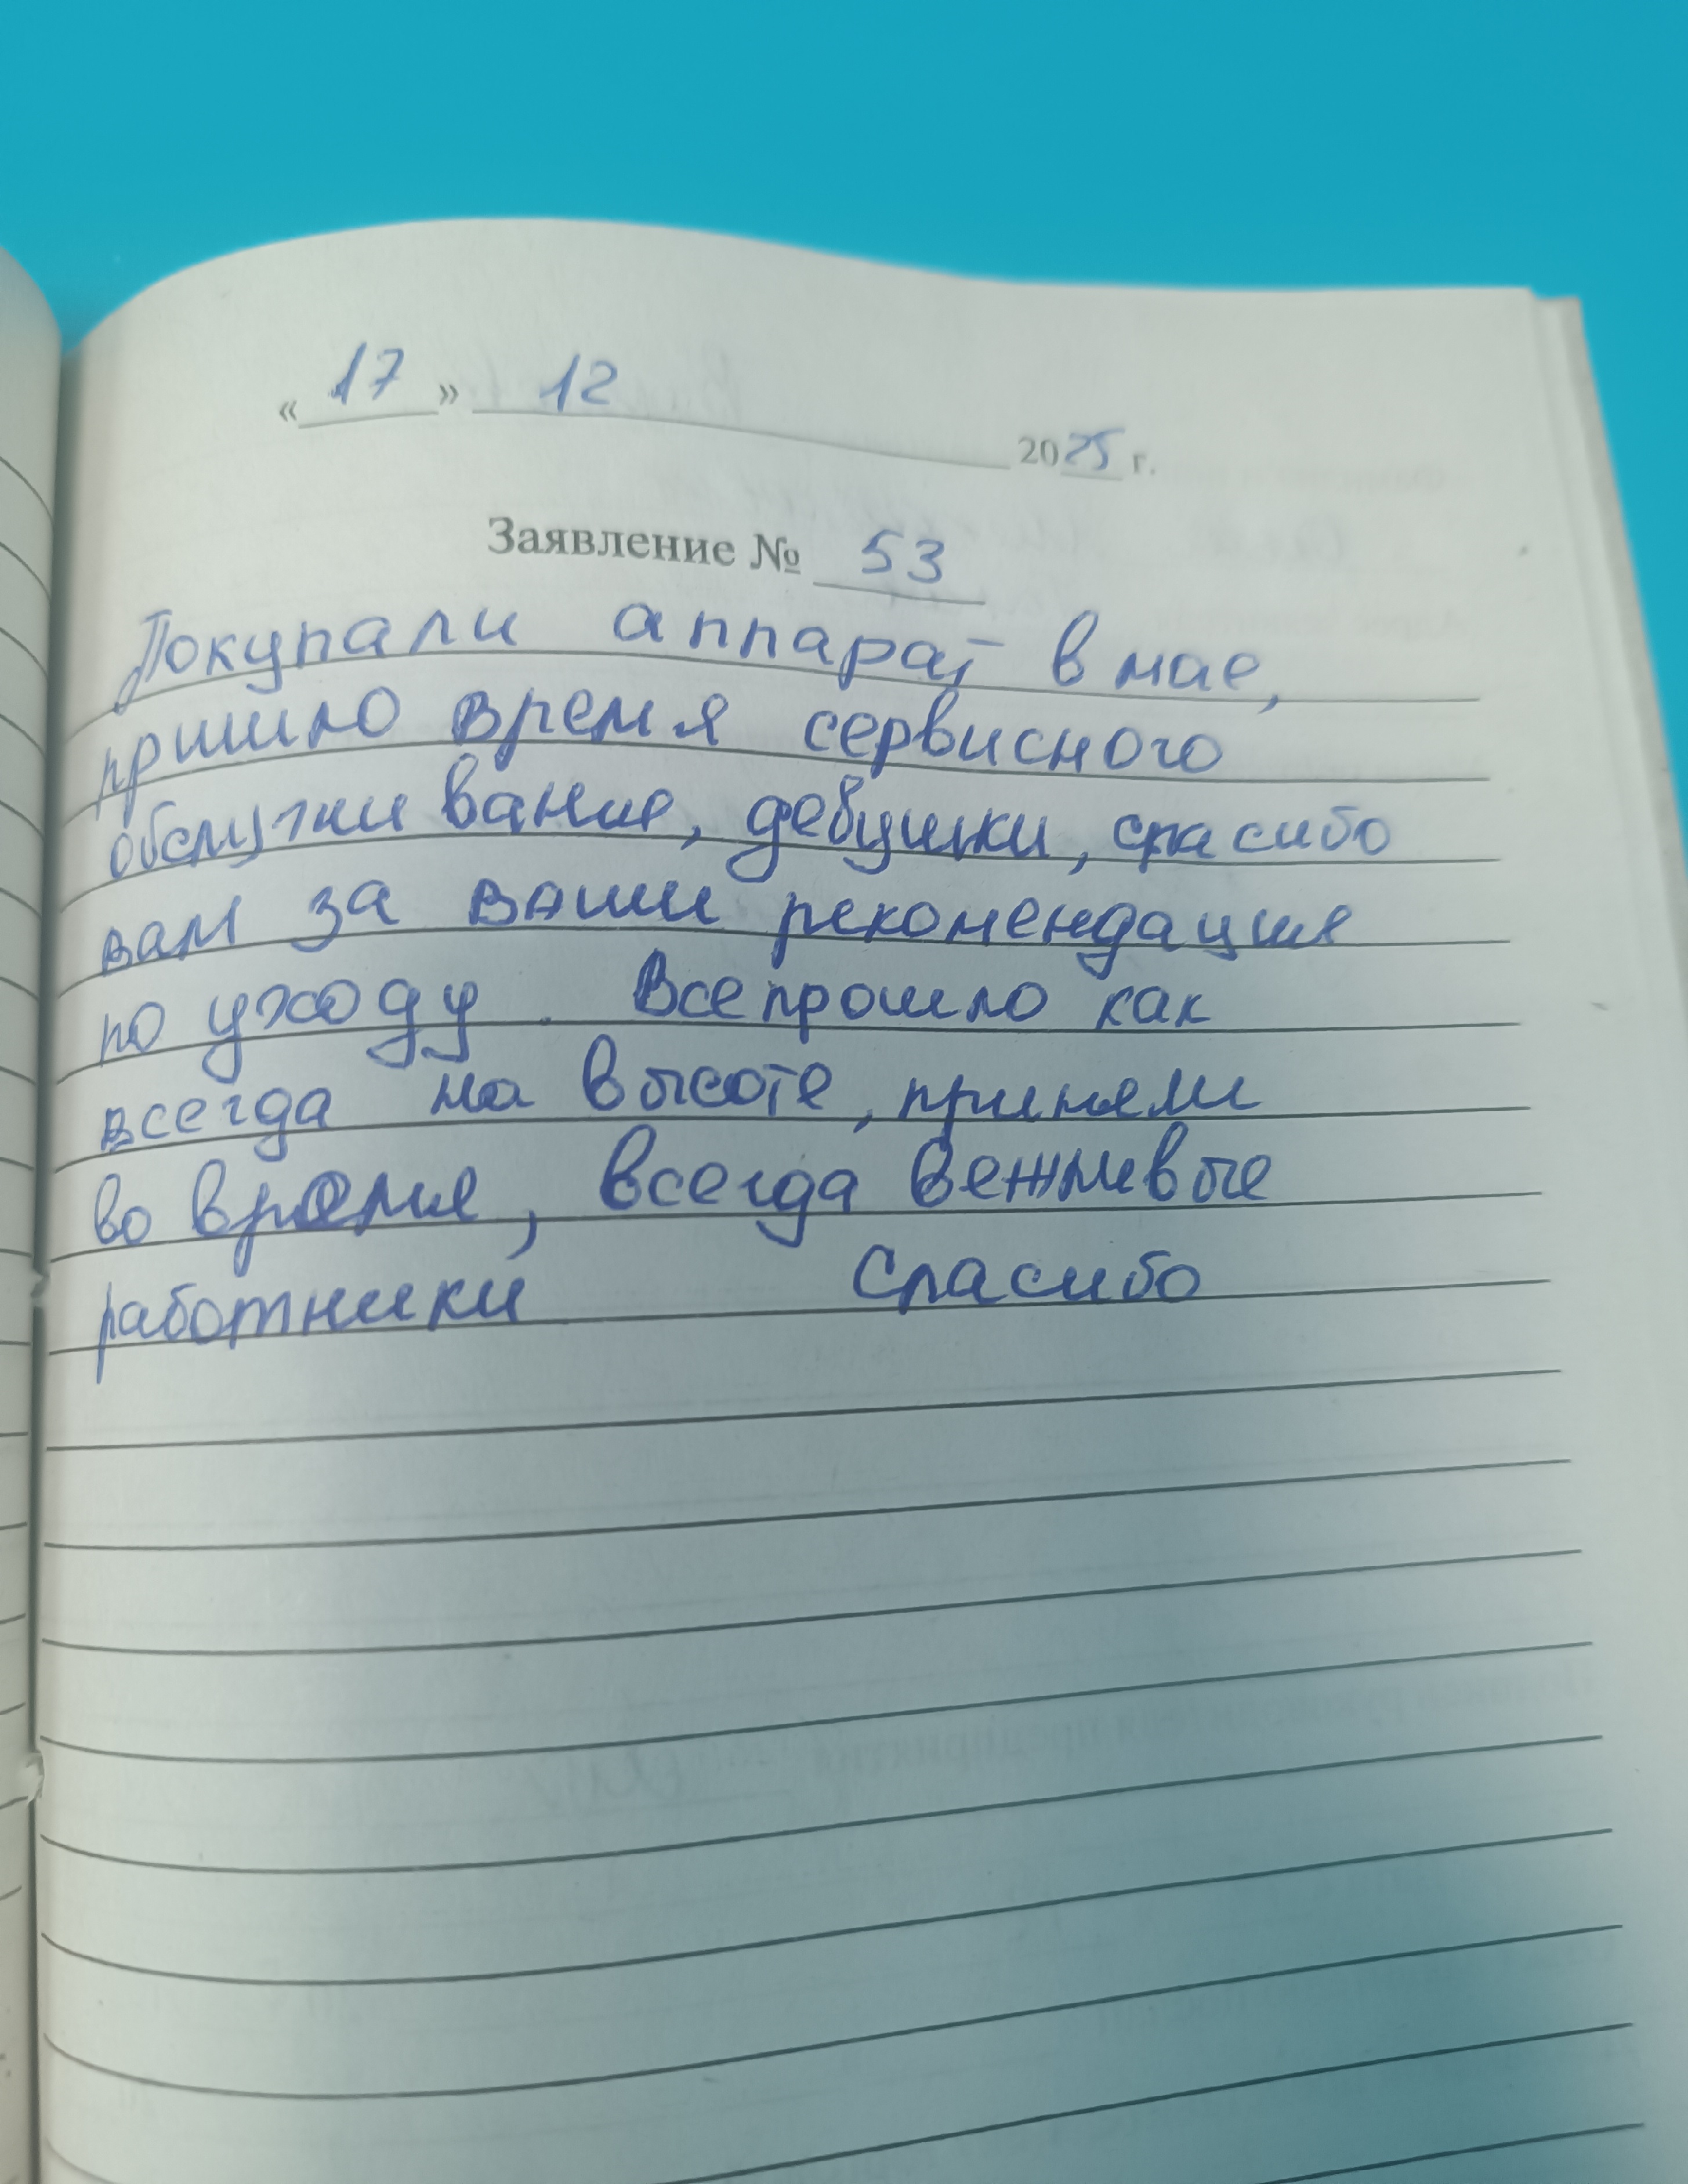 « 17 » 12 2025 г.
Заявление № 53
Покупали аппарат в мае,
пришло время сервисного
обслуживание, девушки, спасибо
вам за ваши рекомендация
по уходу. Все прошло как
всегда на высоте, приняли
во время, всегда вежливые
работники Спасибо